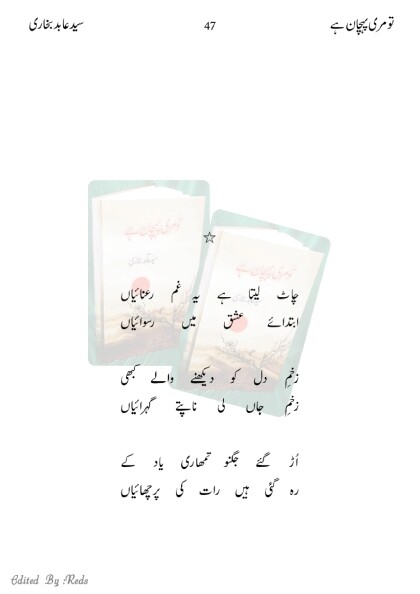 تو مری پہچان ہے 47 سید عابد بخاری
☆
چاٹ لیتا ہے یہ غم رعنائیاں
ابتدائے عشق میں رسوائیاں
زخمِ دل کو دیکھنے والے کبھی
زخمِ جاں لی ناپتے گہرائیاں
اُڑ گئے جگنو تمھاری یاد کے
رہ گئی ہیں رات کی پرچھائیاں
تو مری پہچان ہے
تو مری پہچان ہے
Edited By Reds